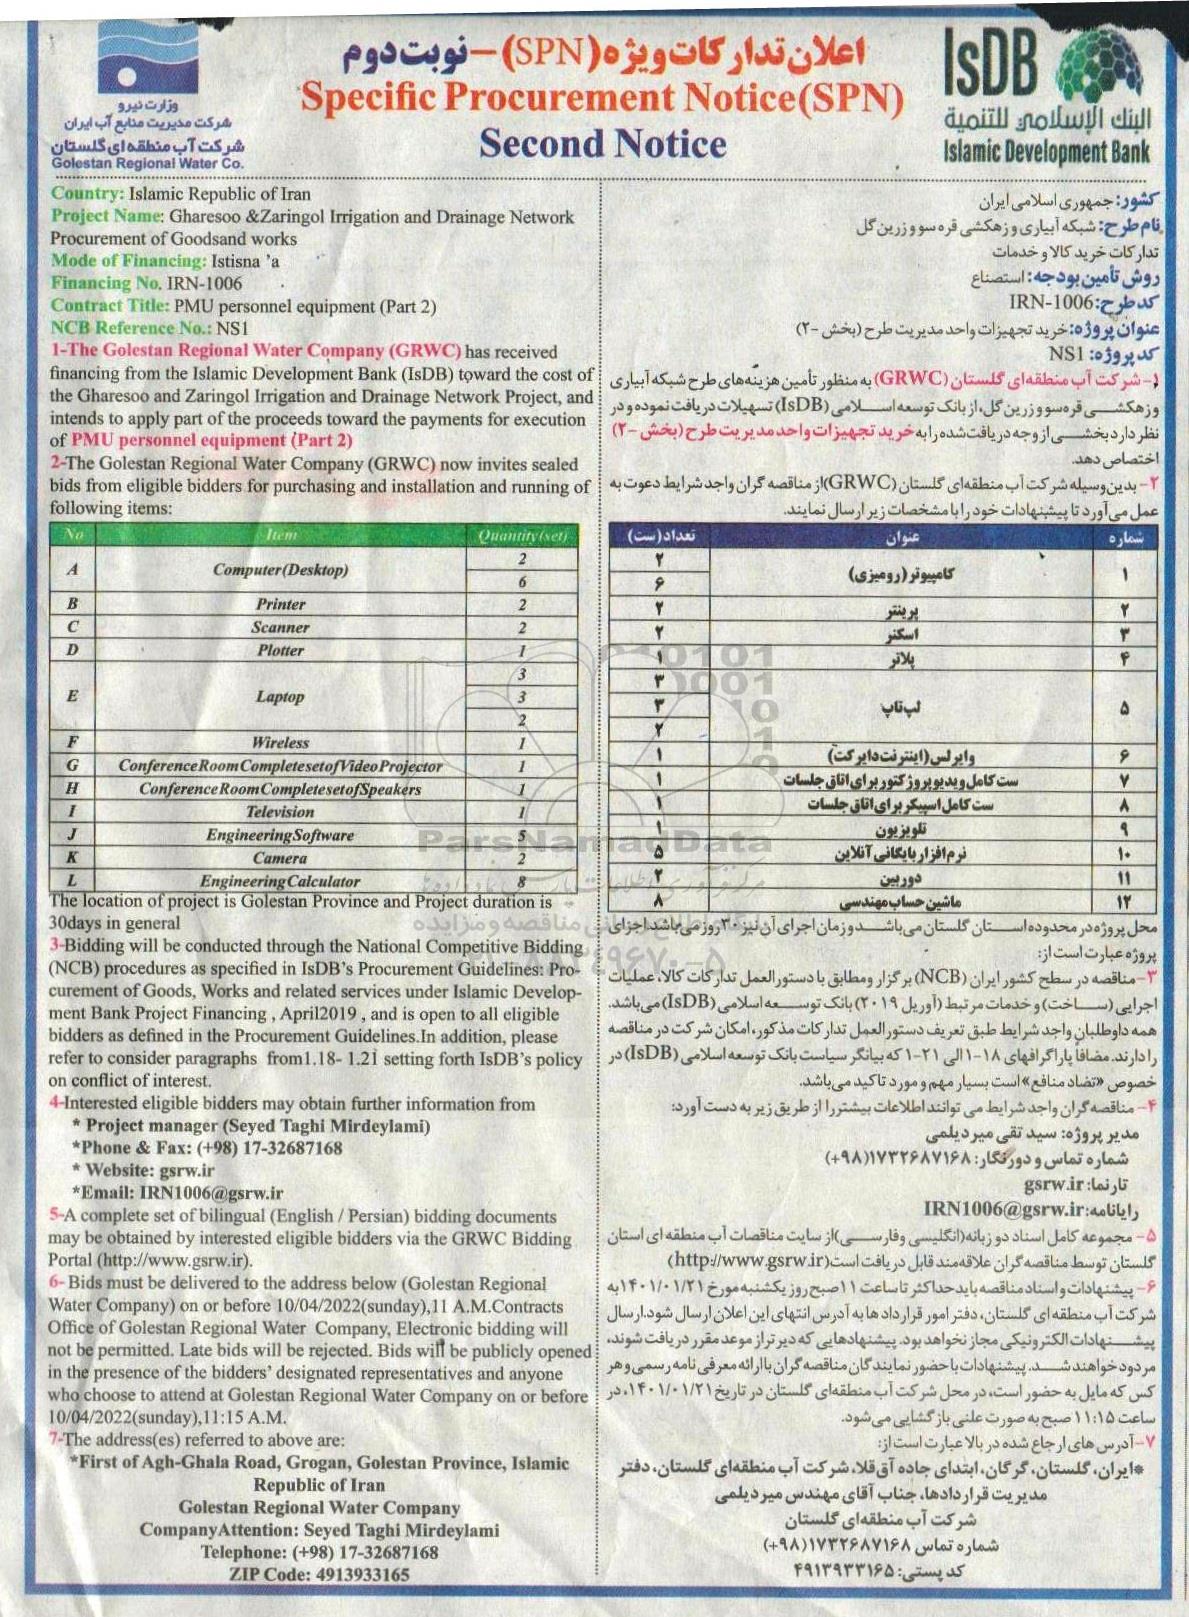 وزارت نیرو
شرکت مدیریت منابع آب ایران
شرکت آب منطقه‌ای گلستان
Golestan Regional Water Co.
اعلان تدارکات ویژه (SPN) – نوبت دوم
Specific Procurement Notice(SPN)
Second Notice
IsDB
البنك الإسلامي للتنمية
Islamic Development Bank
Country: Islamic Republic of Iran
Project Name: Gharesoo &Zaringol Irrigation and Drainage Network
Procurement of Goodsand works
Mode of Financing: Istisna 'a
Financing No. IRN-1006
Contract Title: PMU personnel equipment (Part 2)
NCB Reference No.: NS1
1-The Golestan Regional Water Company (GRWC) has received
financing from the Islamic Development Bank (IsDB) toward the cost of
the Gharesoo and Zaringol Irrigation and Drainage Network Project, and
intends to apply part of the proceeds toward the payments for execution
of PMU personnel equipment (Part 2)
2-The Golestan Regional Water Company (GRWC) now invites sealed
bids from eligible bidders for purchasing and installation and running of
following items:
No Item Quantity(set)
A Computer(Desktop) 2
6
B Printer 2
C Scanner 2
D Plotter 1
E Laptop 3
3
2
F Wireless 1
G ConferenceRoomCompletesetofVideoProjector 1
H ConferenceRoomCompletesetofSpeakers 1
I Television 1
J EngineeringSoftware 5
K Camera 2
L EngineeringCalculator 8
The location of project is Golestan Province and Project duration is
30days in general
3-Bidding will be conducted through the National Competitive Bidding
(NCB) procedures as specified in IsDB's Procurement Guidelines: Pro-
curement of Goods, Works and related services under Islamic Develop-
ment Bank Project Financing , April2019 , and is open to all eligible
bidders as defined in the Procurement Guidelines.In addition, please
refer to consider paragraphs from1.18- 1.21 setting forth IsDB's policy
on conflict of interest.
4-Interested eligible bidders may obtain further information from
* Project manager (Seyed Taghi Mirdeylami)
*Phone & Fax: (+98) 17-32687168
* Website: gsrw.ir
*Email: IRN1006@gsrw.ir
5-A complete set of bilingual (English / Persian) bidding documents
may be obtained by interested eligible bidders via the GRWC Bidding
Portal (http://www.gsrw.ir).
6- Bids must be delivered to the address below (Golestan Regional
Water Company) on or before 10/04/2022(sunday),11 A.M.Contracts
Office of Golestan Regional Water Company, Electronic bidding will
not be permitted. Late bids will be rejected. Bids will be publicly opened
in the presence of the bidders' designated representatives and anyone
who choose to attend at Golestan Regional Water Company on or before
10/04/2022(sunday),11:15 A.M.
7-The address(es) referred to above are:
*First of Agh-Ghala Road, Grogan, Golestan Province, Islamic
Republic of Iran
Golestan Regional Water Company
CompanyAttention: Seyed Taghi Mirdeylami
Telephone: (+98) 17-32687168
ZIP Code: 4913933165
کشور: جمهوری اسلامی ایران
نام طرح: شبکه آبیاری و زهکشی قره سو و زرین گل
تدارکات خرید کالا و خدمات
روش تأمین بودجه: استصناع
کد طرح: IRN-1006
عنوان پروژه: خرید تجهیزات واحد مدیریت طرح (بخش -۲)
کد پروژه: NS1
۱- شرکت آب منطقه‌ای گلستان (GRWC) به منظور تأمین هزینه‌های طرح شبکه آبیاری
و زهکشی قره سو و زرین گل، از بانک توسعه اسلامی (IsDB) تسهیلات دریافت نموده و در
نظر دارد بخشی از وجه دریافت شده را به خرید تجهیزات واحد مدیریت طرح (بخش -۲)
اختصاص دهد.
۲- بدین وسیله شرکت آب منطقه‌ای گلستان (GRWC) از مناقصه گران واجد شرایط دعوت به
عمل می‌آورد تا پیشنهادات خود را با مشخصات زیر ارسال نمایند.
شماره عنوان تعداد (ست)
۱ کامپیوتر (رومیزی) ۲
۶
۲ پرینتر ۲
۳ اسکنر ۲
۴ پلاتر ۱
۵ لپ تاپ ۳
۳
۲
۶ وایرلس (اینترنت دایرکت) ۱
۷ ست کامل ویدیو پروژکتور برای اتاق جلسات ۱
۸ ست کامل اسپیکر برای اتاق جلسات ۱
۹ تلویزیون ۱
۱۰ نرم افزار بایگانی آنلاین ۵
۱۱ دوربین ۲
۱۲ ماشین حساب مهندسی ۸
محل پروژه در محدوده استان گلستان می‌باشد و زمان اجرای آن نیز ۳۰ روز می‌باشد. اجزای
پروژه عبارت است از:
۳- مناقصه در سطح کشور ایران (NCB) برگزار و مطابق با دستورالعمل تدارکات کالا، عملیات
اجرایی (ساخت) و خدمات مرتبط (آوریل ۲۰۱۹) بانک توسعه اسلامی (IsDB) می‌باشد.
همه داوطلبان واجد شرایط طبق تعریف دستورالعمل تدارکات مذکور، امکان شرکت در مناقصه
را دارند. مضافا پاراگرافهای ۱۸-۱ الی ۲۱-۱ که بیانگر سیاست بانک توسعه اسلامی (IsDB) در
خصوص «تضاد منافع» است بسیار مهم و مورد تاکید می‌باشد.
۴- مناقصه گران واجد شرایط می توانند اطلاعات بیشتر را از طریق زیر به دست آورد:
مدیر پروژه: سید تقی میردیلمی
شماره تماس و دورنگار: ۱۷۳۲۶۸۷۱۶۸(۹۸+)
تارنما: gsrw.ir
رایانامه: IRN1006@gsrw.ir
۵- مجموعه کامل اسناد دو زبانه (انگلیسی و فارسی) از سایت مناقصات آب منطقه ای استان
گلستان توسط مناقصه گران علاقه‌مند قابل دریافت است (http://www.gsrw.ir)
۶- پیشنهادات و اسناد مناقصه باید حداکثر تا ساعت ۱۱ صبح روز یکشنبه مورخ ۱۴۰۱/۰۱/۲۱ به
شرکت آب منطقه ای گلستان، دفتر امور قراردادها به آدرس انتهای این اعلان ارسال شود. ارسال
پیشنهادات الکترونیکی مجاز نخواهد بود. پیشنهادهایی که دیرتر از موعد مقرر دریافت شوند،
مردود خواهند شد. پیشنهادات با حضور نمایندگان مناقصه گران با ارائه معرفی نامه رسمی و هر
کس که مایل به حضور است، در محل شرکت آب منطقه‌ای گلستان در تاریخ ۱۴۰۱/۰۱/۲۱، در
ساعت ۱۱:۱۵ صبح به صورت علنی بازگشایی می‌شود.
۷- آدرس های ارجاع شده در بالا عبارت است از:
*ایران، گلستان، گرگان، ابتدای جاده آق قلا، شرکت آب منطقه‌ای گلستان، دفتر
مدیریت قراردادها، جناب آقای مهندس میردیلمی
شرکت آب منطقه‌ای گلستان
شماره تماس ۱۷۳۲۶۸۷۱۶۸(۹۸+)
کد پستی: ۴۹۱۳۹۳۳۱۶۵
ParsNamadData